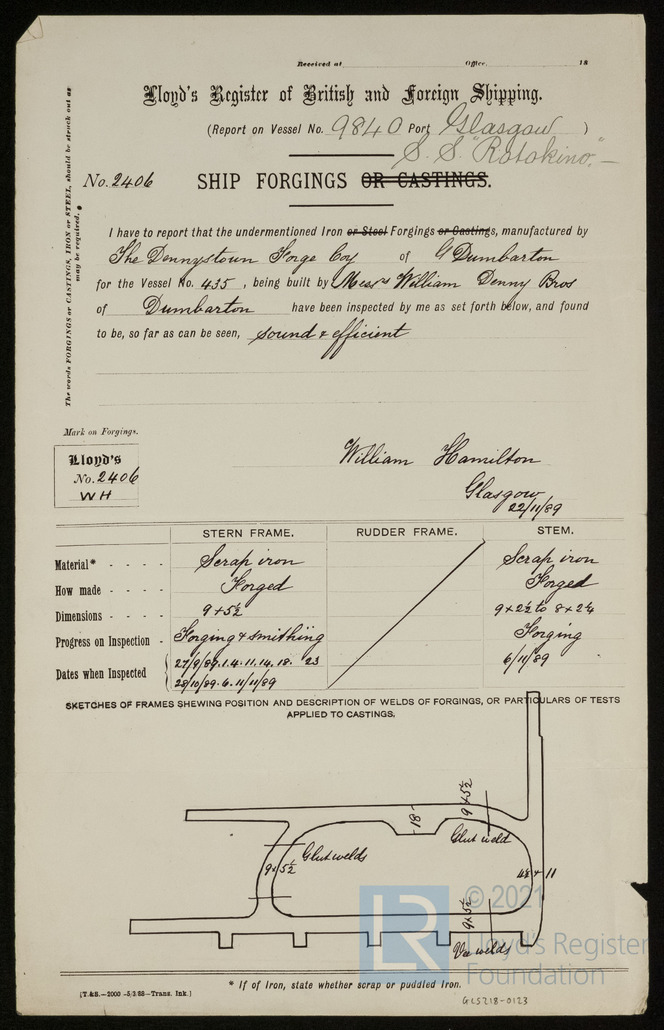 Received at Office, 18
Lloyd's Register of British and Foreign Shipping.
(Report on Vessel No. 9840 Port Glasgow )
S. S. "Rotokino."
No. 2406 SHIP FORGINGS OR CASTINGS.
The words FORGINGS or CASTINGS, IRON or STEEL, should be struck out as
may be required.
I have to report that the undermentioned Iron or Steel Forgings or Castings, manufactured by
The Dennystown Forge Coy of Dumbarton
for the Vessel No. 435, being built by Messrs William Denny Bros
of Dumbarton have been inspected by me as set forth below, and found
to be, so far as can be seen, sound & efficient
Mark on Forgings.
Lloyd's
No. 2406
WH
William Hamilton
Glasgow
22/11/89
STERN FRAME. RUDDER FRAME. STEM.
Material* - - - - Scrap iron Scrap iron
How made - - - - Forged Forged
Dimensions - - - - 9 + 5½ 9 + 2½ to 8 + 2¼
Progress on Inspection - Forging & smithing Forging
Dates when Inspected 27/9/89. 1. 4. 11. 14. 18. 23 6/11/89
28/10/89. 6. 11/11/89
SKETCHES OF FRAMES SHEWING POSITION AND DESCRIPTION OF WELDS OF FORGINGS, OR PARTICULARS OF TESTS
APPLIED TO CASTINGS.
18
9 + 5½
Glut weld
Glut welds
9 + 5½
+ 11
9 + 5½
Vee welds
LR
© 2021
Lloyd's Register
Foundation
* If of Iron, state whether scrap or puddled Iron.
[T.&S.—2000 —5/3/88—Trans. Ink.]
GLS218-0123